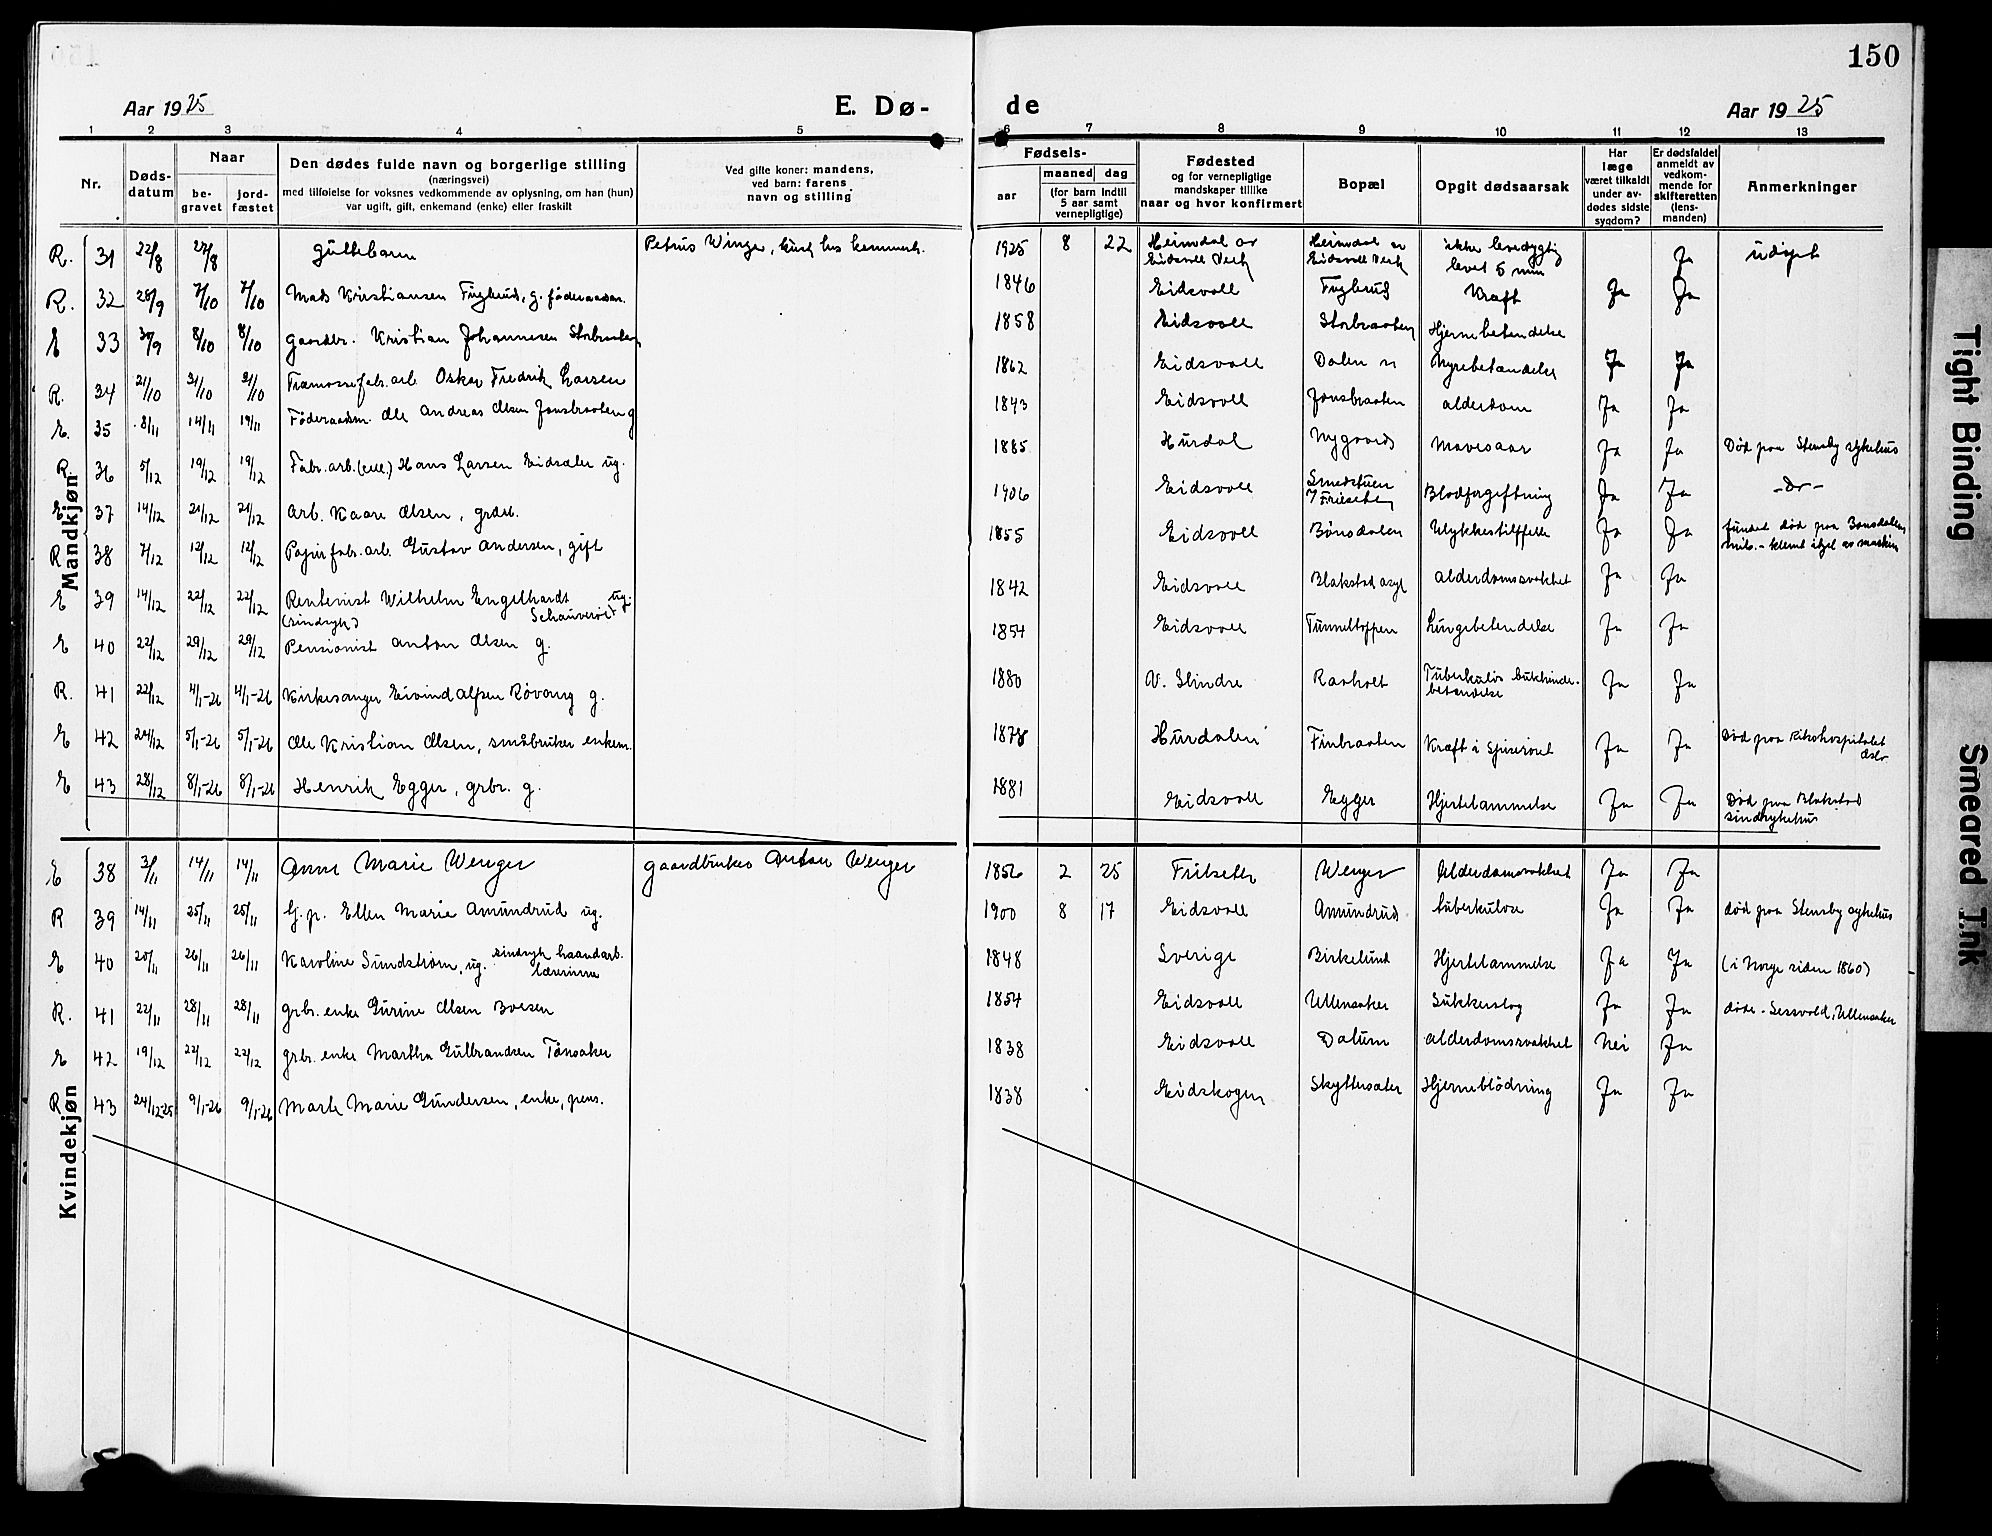 150
Aar 1925
E. Dø-
de
Aar 1925
1 2 3 4 5 6 7 8 9 10 11 12 13
Nr.
Døds-
datum
Naar
be-
gravet
jord-
fæstet
Den dødes fulde navn og borgerlige stilling
(næringsvei)
med tilføielse for voksnes vedkommende av oplysning, om han (hun)
var ugift, gift, enkemand (enke) eller fraskilt
Ved gifte koner: mandens,
ved barn: farens
navn og stilling
Fødsels-
aar
maaned dag
(for barn indtil
5 aar samt
vernepligtige)
Fødested
og for vernepligtige
mandskaper tillike
naar og hvor konfirmert
Bopæl
Opgit dødsaarsak
Har
læge
været tilkaldt
under av-
dødes sidste
sygdom?
Er dødsfaldet
anmeldt av
vedkom-
mende for
skifteretten
(lens-
manden)
Anmerkninger
Mandkjøn
R. 31 22/8 27/8 Guttebarn Petrus Winger, 1925 8 22 Heimdal av Eidsvoll Verk Heimdal Eidsvoll Verk ikke levedygtig levet 5 min Ja udøpt
R. 32 28/9 7/10 7/10 Mads Kristiansen Fuglerud, g. føderaadsm. 1846 Eidsvoll Kræft Ja Ja
E 33 30/9 8/10 8/10 Gaardbr. Kristian Johannesen Storbraaten 1858 Eidsvoll Storbraaten Hjernebetendelse
R. 34 21/10 31/10 31/10 Træmassefabr.arb. Oskar Fredrik Larsen 1862 Eidsvoll Dalen Nyrebetændelse Ja Ja
E. 35 8/11 14/11 14/11 Föderaadsm. Ole Andreas Olsen Jonsbraaten g 1843 Eidsvoll Jonsbraaten alderdom Ja Ja
R. 36 5/12 19/12 19/12 Fabr.arb. Hans Larsen ug. 1885 Hurdal Nygaard Mavesaar Ja Ja Død paa Stensby sykehus
E 37 14/12 21/12 21/12 Arb. Kaare Olsen, 1906 Eidsvoll Smedstuen Blodforgiftning Ja Ja -do-
R 38 7/12 12/12 12/12 Papirfabr.arb. Gustav Andersen, gift 1855 Eidsvoll Bønsdalen Ulykkestilfelle Ja Ja fundet død paa Bønsdalen klemt ihjel av maskin
E 39 14/12 22/12 22/12 Rentenist Wilhelm Engelhardt ug. (sindsyk) 1842 Eidsvoll Blakstad asyl alderdomssvakhet Ja Ja
E 40 22/12 29/12 29/12 Pensionist Anton Olsen g. 1854 Eidsvoll Tunneltoppen Lungebetendelse Ja Ja
R. 41 22/12 4/1-26 4/1-26 Kirkesanger Eivind Alfsen Røvang g. 1880 V. Slindre Raaholt Tuberkuløs bukhindebetændelse Ja Ja
E 42 24/12 5/1-26 5/1-26 Ole Kristian Olsen, småbruker enkem. 1878 Hurdalen Finbraaten Kræft i Spiserøret Ja Ja Død paa Rikshospitalet Oslo
E 43 28/12 8/1-26 8/1-26 Henrik Egger, grbr. g. 1881 Eidsvoll Egger Hjertelammelse Ja Ja Død paa Blakstad sindssykehus
Kvindekjøn
E 38 3/11 14/11 14/11 Anne Marie Wenger Gaardbruker Anton Wenger 1856 2 25 Wenger Alderdomssvakhet Ja Ja
R 39 14/11 25/11 25/11 G.p. Ellen Marie Amundrud ug. 1900 8 17 Eidsvoll Amundrud tuberkulose Ja Ja død paa Stensby sykehus
E 40 20/11 26/11 26/11 Karoline Sundstrøm, ug. sindsyk haandarb. lærerinne 1848 Sverige Birkelund Hjertelammelse Ja Ja (i Norge siden 1860)
R. 41 22/11 28/11 28/11 grbr. enke Gurine Olsen Boesen 1854 Eidsvoll Ullensaker Sukkersyg Ja Ja døde Jessvold, Ullensaker
E 42 19/12 22/12 22/12 grbr. enke Martha Gulbrandsen Tönsaker 1838 Eidsvoll Dalum alderdomssvakhet Nei Ja
R 43 24/12-25 9/1-26 9/1-26 Marie Gundersen, enke, pens. 1838 Eidskogen Hjerneblödning Ja Ja
Tight Binding
Smeared Ink